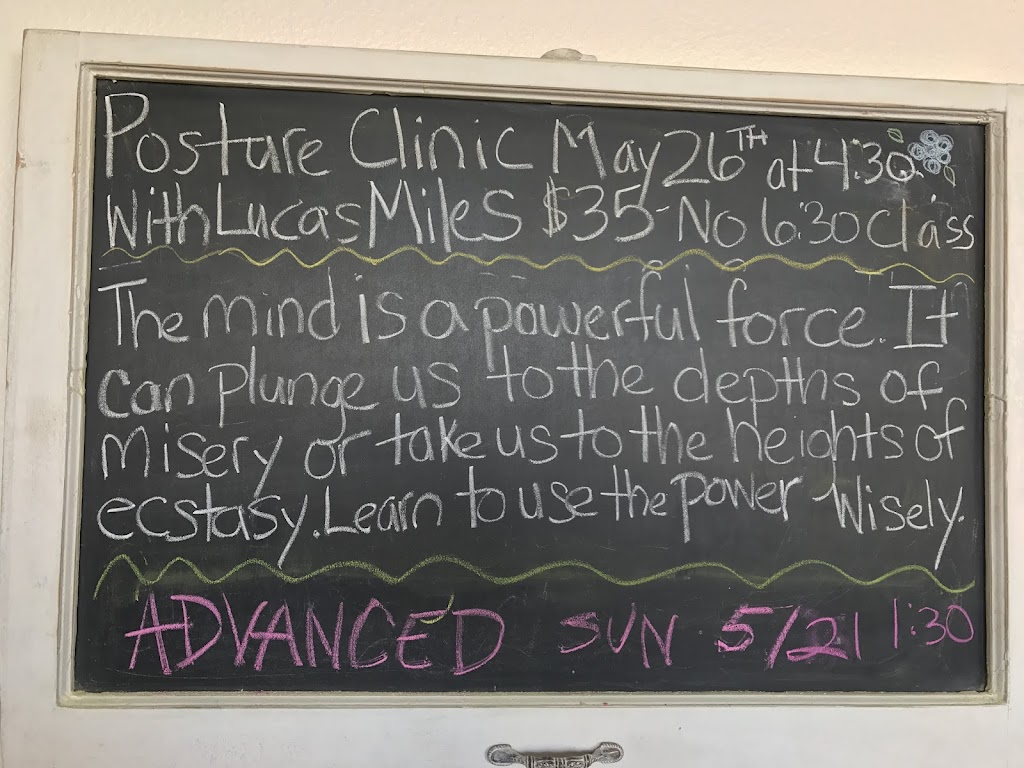 Posture Clinic May 26TH at 4:30
With Lucas Miles $35- No 6:30 Class
The mind is a powerful force. It
can plunge us to the depths of
misery or take us to the heights of
ecstasy. Learn to use the power wisely.
ADVANCED SUN 5/21 1:30